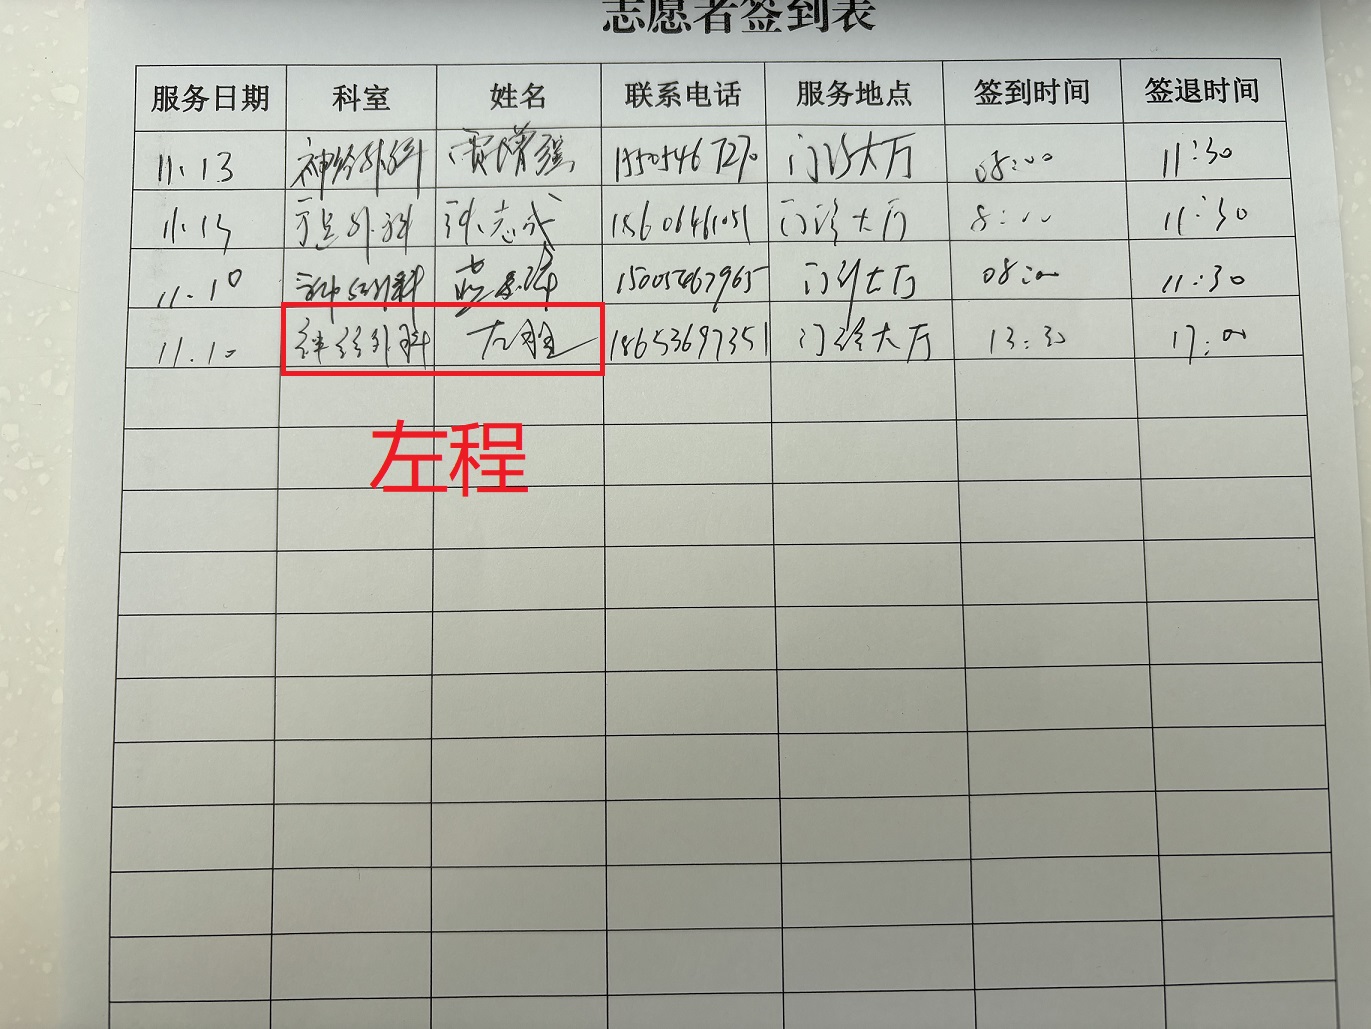 志愿者签到表
服务日期 科室 姓名 联系电话 服务地点 签到时间 签退时间
11.13 神经外科 贾清强 15505467270 门诊大厅 08:00 11:30
11.13 手足外科 孙志武 15606461051 门诊大厅 8:00 11:30
11.10 神经外科 15005467965 门诊大厅 08:00 11:30
11.10 神经外科 左程 18653697351 门诊大厅 13:30 17:00
左程